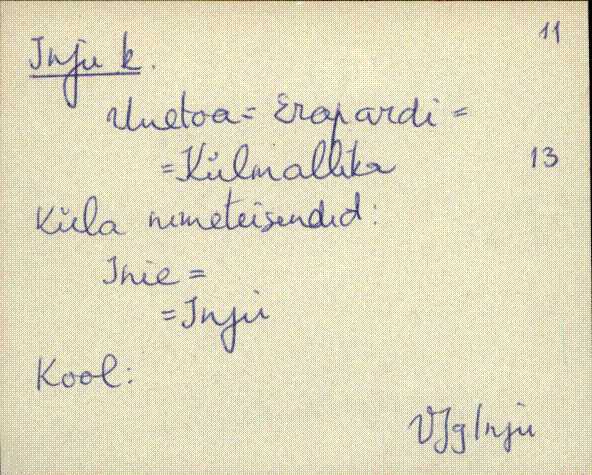 11
Inju k.
Unetoa = Erapardi =
= Külmallika
13
Küla nimeteisendid:
Inie =
= Inju
Kool:
VJg/nju